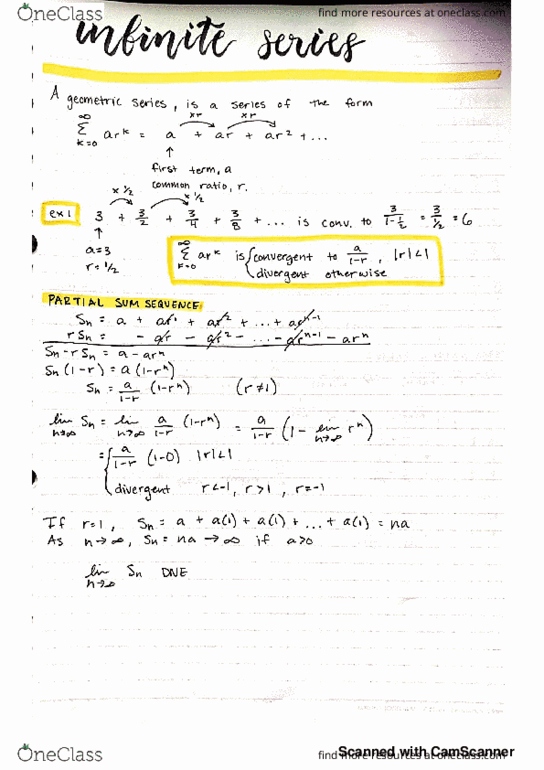 OneClass
find more resources at oneclass.com
find more resources at oneclass.com
infinite series
A geometric series, is a series of the form
xr xr
∞ Σ k=0 ar^k = a + ar + ar² + ...
↑
first term, a
common ratio, r.
x ½ x ½
ex 1 3 + 3/2 + 3/4 + 3/8 + ... is conv. to 3/(1-½) = 3/(½) = 6
↑
a=3
r=½
∞ Σ k=0 ar^k is { convergent to a/(1-r) , |r|<1
divergent otherwise
PARTIAL SUM SEQUENCE:
Sn = a + ar + ar² + ... + ar^(n-1)
rSn = - ar - ar² - ... - ar^(n-1) - ar^n
Sn - rSn = a - ar^n
Sn (1-r) = a (1-r^n)
Sn = a/(1-r) (1-r^n) (r≠1)
lim n→∞ Sn = lim n→∞ a/(1-r) (1-r^n) = a/(1-r) (1 - lim n→∞ r^n)
= { a/(1-r) (1-0) |r|<1
divergent r<-1, r>1, r=-1
If r=1, Sn = a + a(1) + a(1) + ... + a(1) = na
As n→∞, Sn = na → ∞ if a>0
lim n→∞ Sn DNE
OneClass
find more resources at oneclass.com
Scanned with CamScanner